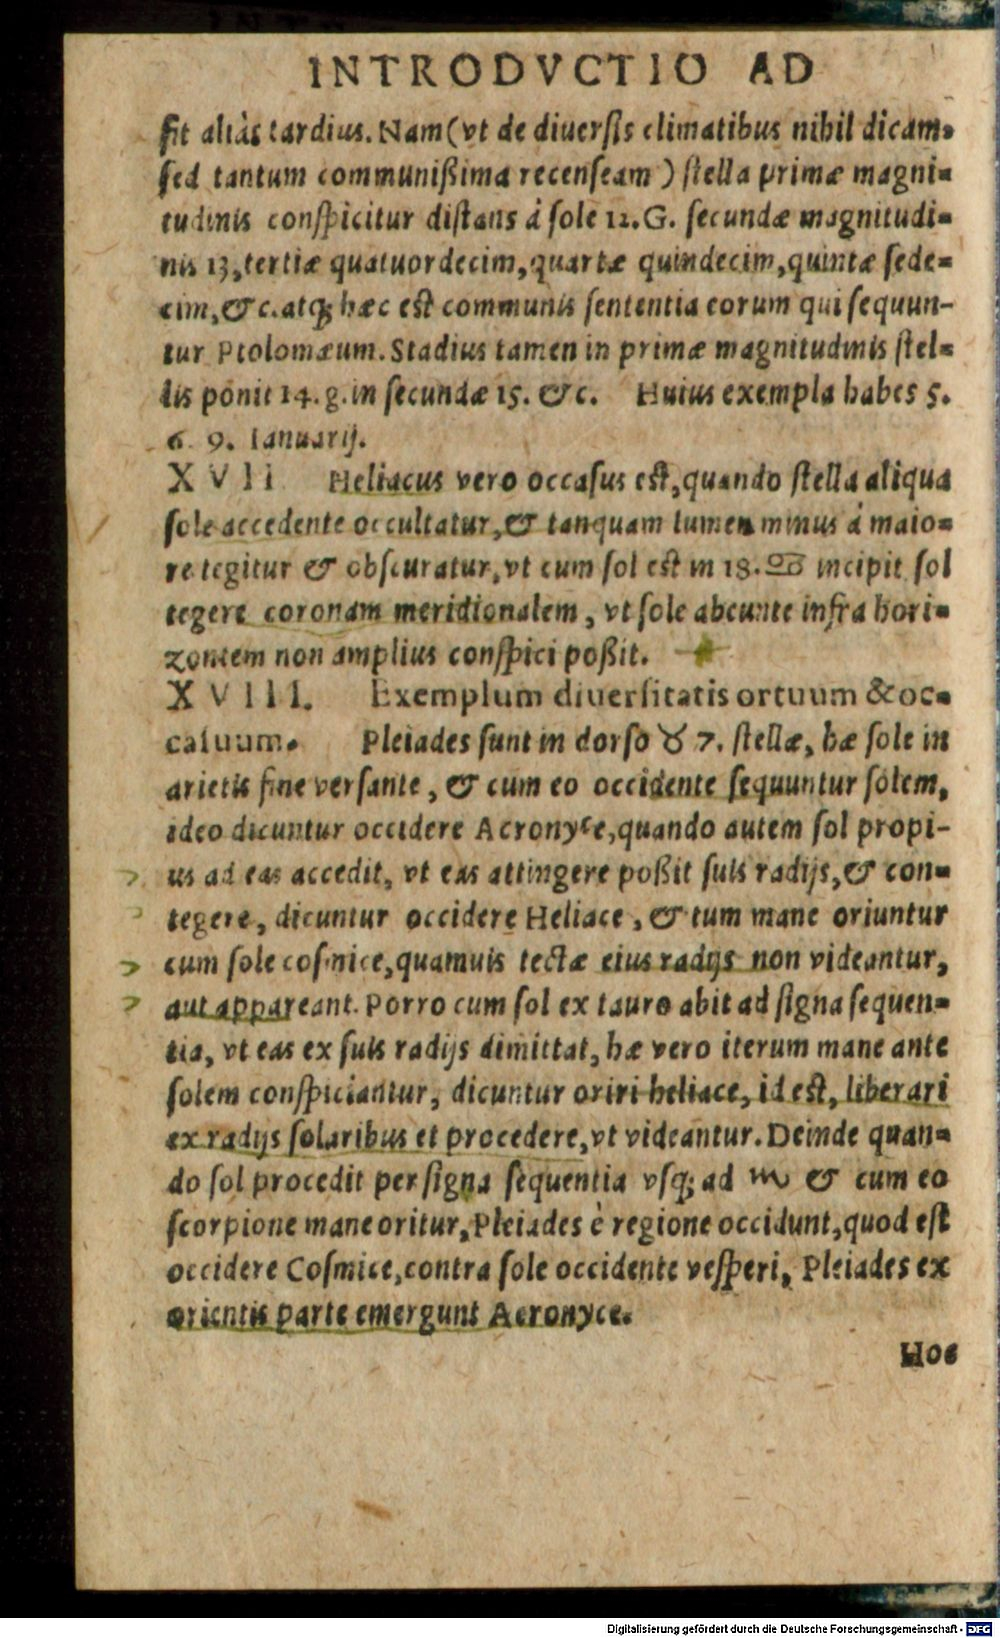 INTRODVCTIO AD
fit aliàs tardius. Nam (vt de diuersis climatibus nihil dicam,
sed tantum communißima recenseam) stella primæ magni=
tudinis conspicitur distans à sole 12. G. secundæ magnitudi=
nis 13, tertiæ quatuordecim, quartæ quindecim, quintæ sede=
cim, & c. atq; hæc est communis sententia eorum qui sequun-
tur Ptolomæum. Stadius tamen in primæ magnitudinis stel=
lis ponit 14. g. in secundæ 15. & c. Huius exempla habes 5.
6 9. Ianuarij.
XVII Heliacus vero occasus est, quando stella aliqua
sole accedente occultatur, & tanquam lumen minus á maio=
re tegitur & obscuratur, vt cum sol est in 18. ♋ incipit sol
tegere coronam meridionalem, vt sole abeunte infra hori=
zontem non amplius conspici poßit.
XVIII. Exemplum diuersitatis ortuum & oc=
casuum. Pleiades sunt in dorso ♉ 7. stellæ, hæ sole in
arietis fine versante, & cum eo occidente sequuntur solem,
ideo dicuntur occidere Acronyce, quando autem sol propi-
us ad eas accedit, vt eas attingere poßit suis radijs, & con=
tegere, dicuntur occidere Heliace, & tum mane oriuntur
cum sole cosmice, quamuis tectæ eius radijs non videantur,
aut appareant. Porro cum sol ex tauro abit ad signa sequen=
tia, vt eas ex suis radijs dimittat, hæ vero iterum mane ante
solem conspiciantur, dicuntur oriri heliace, id est, liberari
ex radijs solaribus et procedere, vt videantur. Deinde quan=
do sol procedit per signa sequentia vsq; ad ♏ & cum eo
scorpione mane oritur, Pleiades è regione occidunt, quod est
occidere Cosmice, contra sole occidente vesperi, Pleiades ex
orientis parte emergunt Acronyce.
Hoc
Digitalisierung gefördert durch die Deutsche Forschungsgemeinschaft - DFG